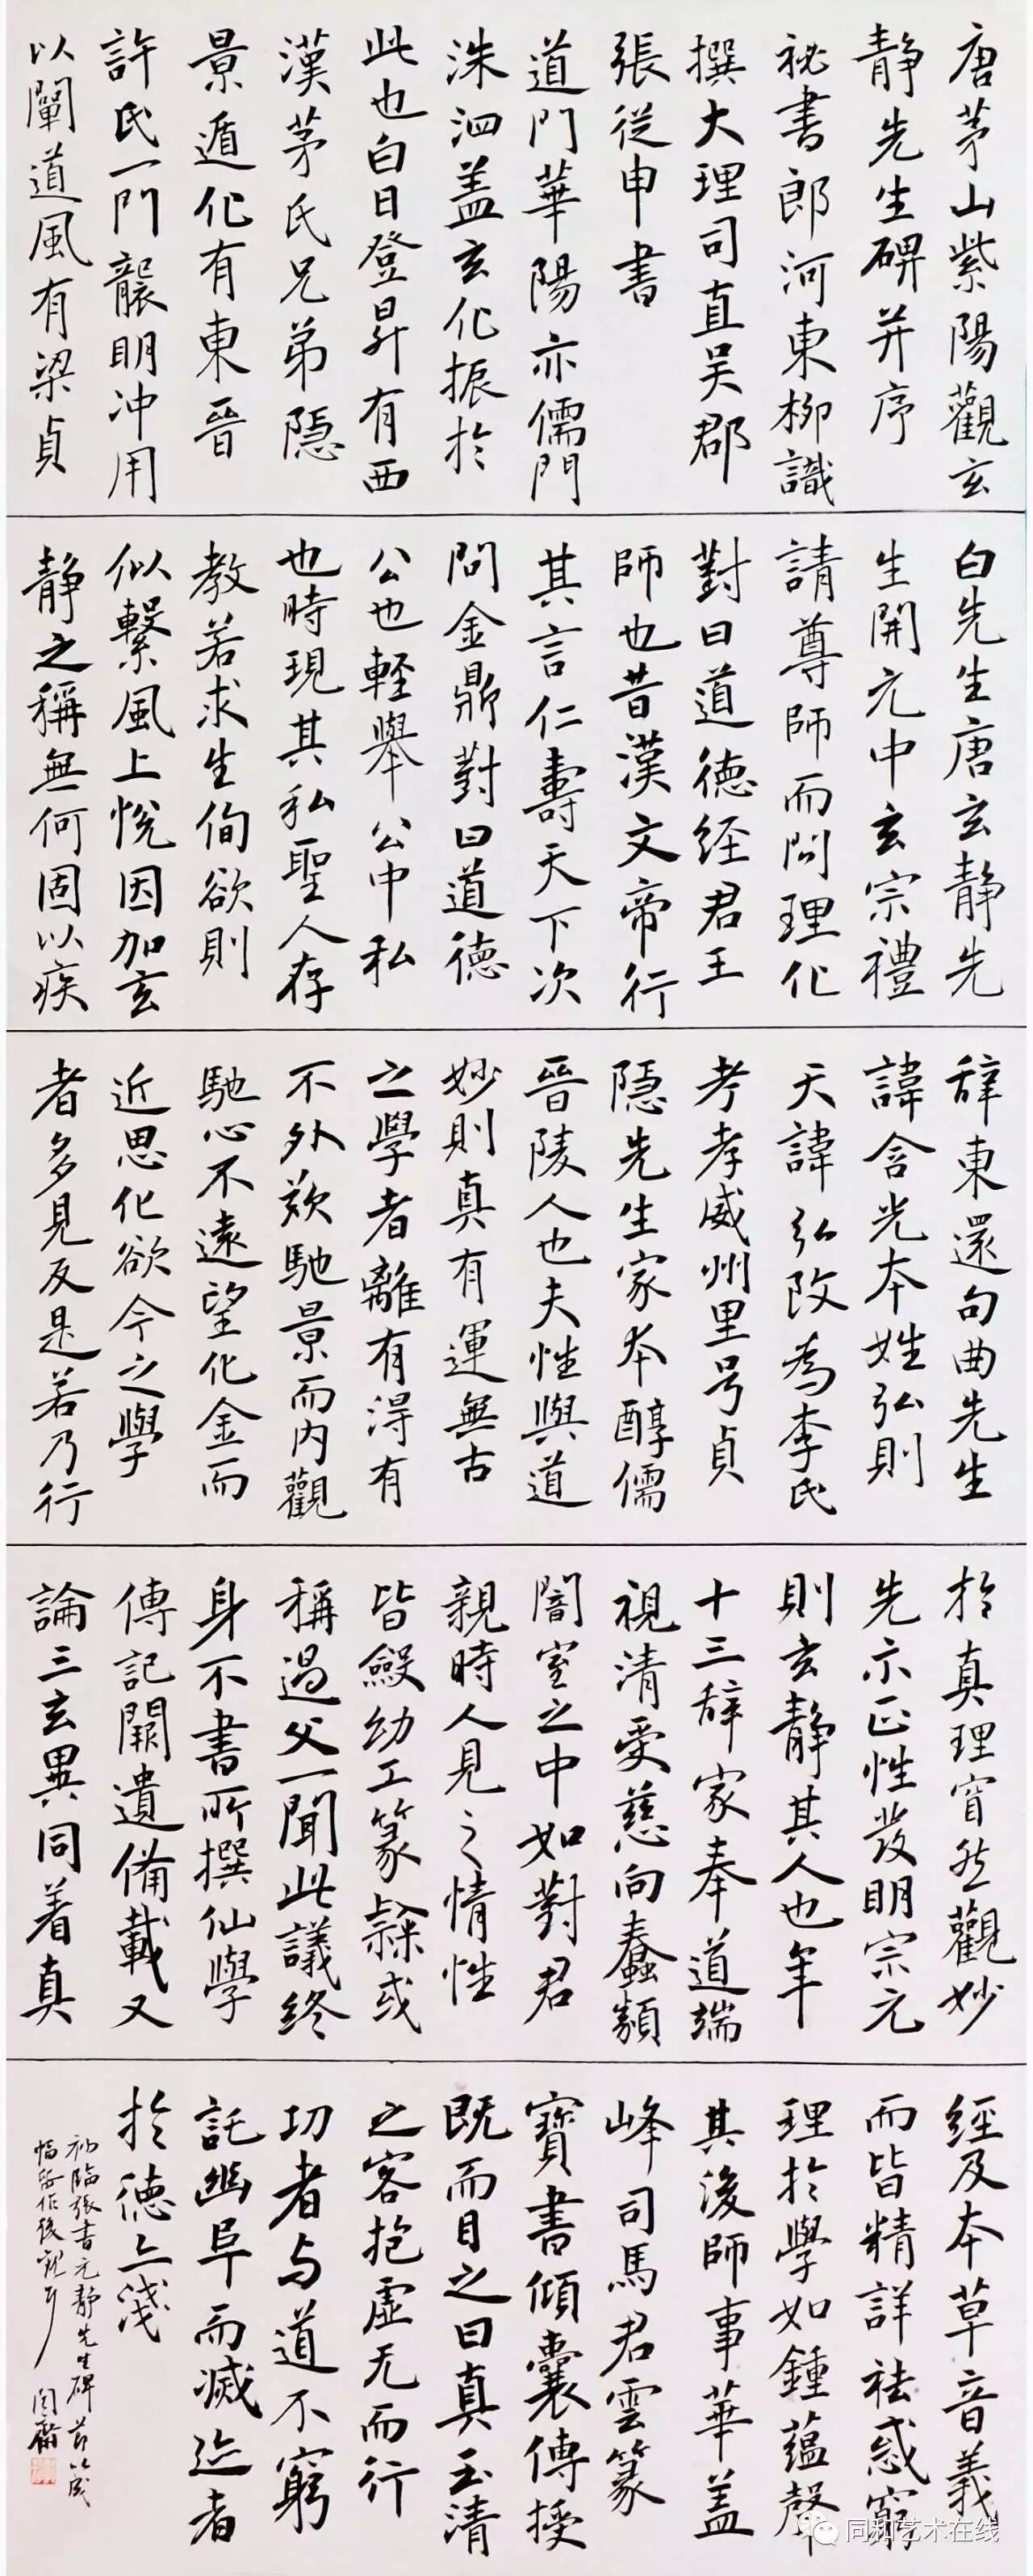 唐茅山紫陽觀玄
静先生碑并序
祕書郎河東柳識
撰大理司直吴郡
張從申書
道門華陽亦儒門
洙泗盖玄化振於
此也白日登昇有西
漢茅氏兄弟隱
景遁化有東晉
許氏一門龖明冲用
以闡道風有梁貞
白先生唐玄静先
生開元中玄宗禮
請尊師而問理化
對曰道德经君王
師也昔漢文帝行
其言仁壽天下次
問金鼎對曰道德
公也輕舉公中私
也時現其私聖人存
教若求生徇欲則
似繫風上悦因加玄
静之稱無何固以疾
辞東還句曲先生
諱含光本姓弘則
天諱弘改為李氏
考孝威州里号貞
隱先生家本醇儒
晉陵人也夫性與道
妙則真有運無古
之學者離有淂有
不外欻馳景而内觀
馳心不遠望化金而
近思化欲今之學
者多見反是若乃行
於真理窅然觀妙
先示正性发明宗元
則玄静其人也年
十三辞家奉道端
視清受慈向蠢類
闇室之中如對君
親時人見之情性
皆斂幼工篆隸或
稱過父一聞此議终
身不書所撰仙學
傳記闕遺備載又
論三玄異同着真
經及本草音義
而皆精詳祛惑窮
理於學如鍾蘊聲
其後師事華盖
峰司馬君雲篆
寶書傾囊傳授
既而目之曰真玉清
之客抱虚无而行
功者与道不窮
託幽阜而滅迹者
於德亦淺
初臨張書元静先生碑
同和艺术在线